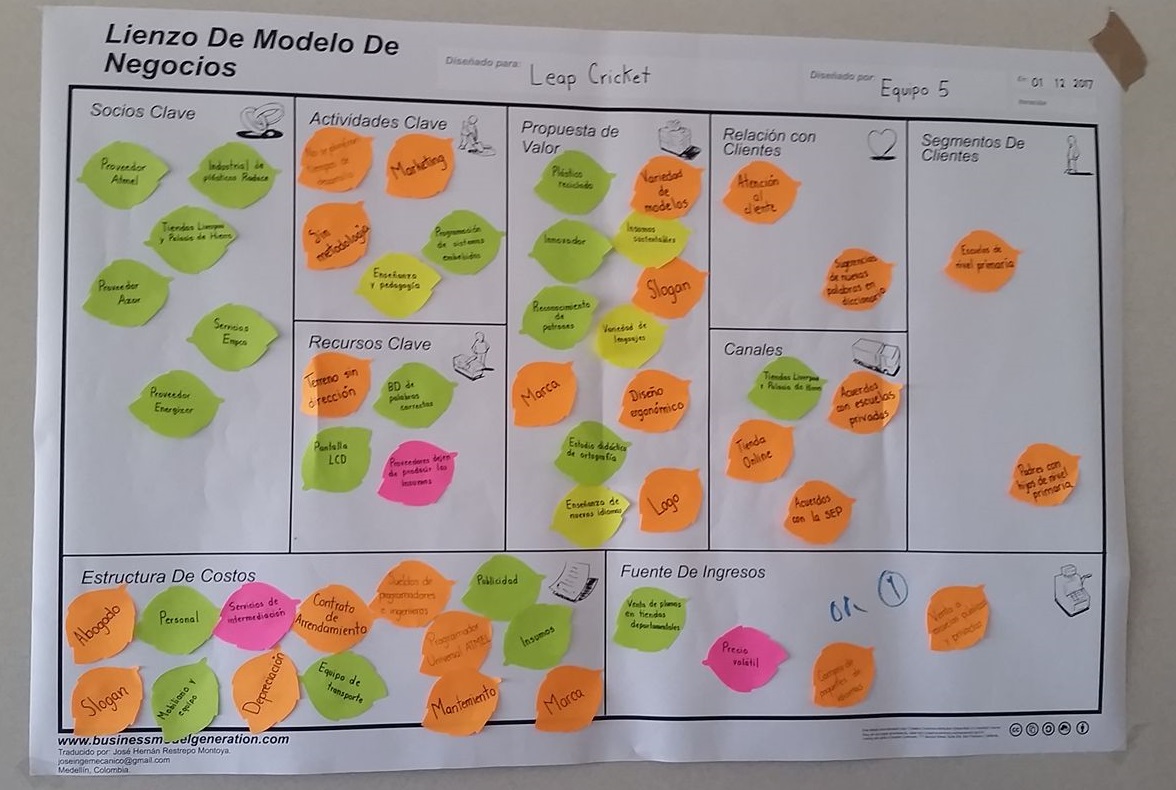 Lienzo De Modelo De
Negocios
Diseñado para:
Leap Cricket
Diseñado por:
Equipo 5
01 12 2017
Socios Clave
Proveedor
Atmel
Industrial de
plásticos Roduce
Tiendas Liverpool
y Palacio de Hierro
Proveedor
Azor
Servicios
Empco
Proveedor
Energizer
Actividades Clave
de
desarrollo
Marketing
Sin
metodología
Programación
de sistemas
embebidos
Enseñanza
y pedagogía
Recursos Clave
Terreno sin
dirección
BD de
palabras
correctas
Pantalla
LCD
Proveedores dejen
de producir los
insumos
Propuesta de
Valor
Plástico
reciclado
Variedad
de
modelos
Innovador
Insumos
sustentables
Slogan
Reconocimiento
de
patrones
Variedad de
lenguajes
Marca
Diseño
ergonómico
Estudio didáctico
de ortografía
Enseñanza de
nuevos idiomas
Logo
Relación con
Clientes
Atención
al
cliente
Sugerencias
de nuevas
palabras en
diccionario
Canales
Tiendas Liverpool
y Palacio de Hierro
Acuerdos
con escuelas
privadas
Tienda
Online
Acuerdos
con la SEP
Segmentos De
Clientes
Escuelas de
nivel primaria
Padres con
hijos de nivel
primaria
Estructura De Costos
Abogado
Personal
Servicios de
intermediación
Contrato
de
Arrendamiento
Sueldos de
programadores
e ingenieros
Publicidad
Programador
Universal ATMEL
Insumos
Slogan
Mobiliario y
equipo
Depreciación
Equipo de
transporte
Mantemiento
Marca
Fuente De Ingresos
Venta de plumas
en tiendas
departamentales
Precio
volátil
Compra de
paquetes de
Venta a
escuelas públicas
y privadas
www.businessm delgeneration.com
Traducido por: José Hernán Restrepo Montoya.
joseingemecanico@gmail.com
Medellín, Colombia.